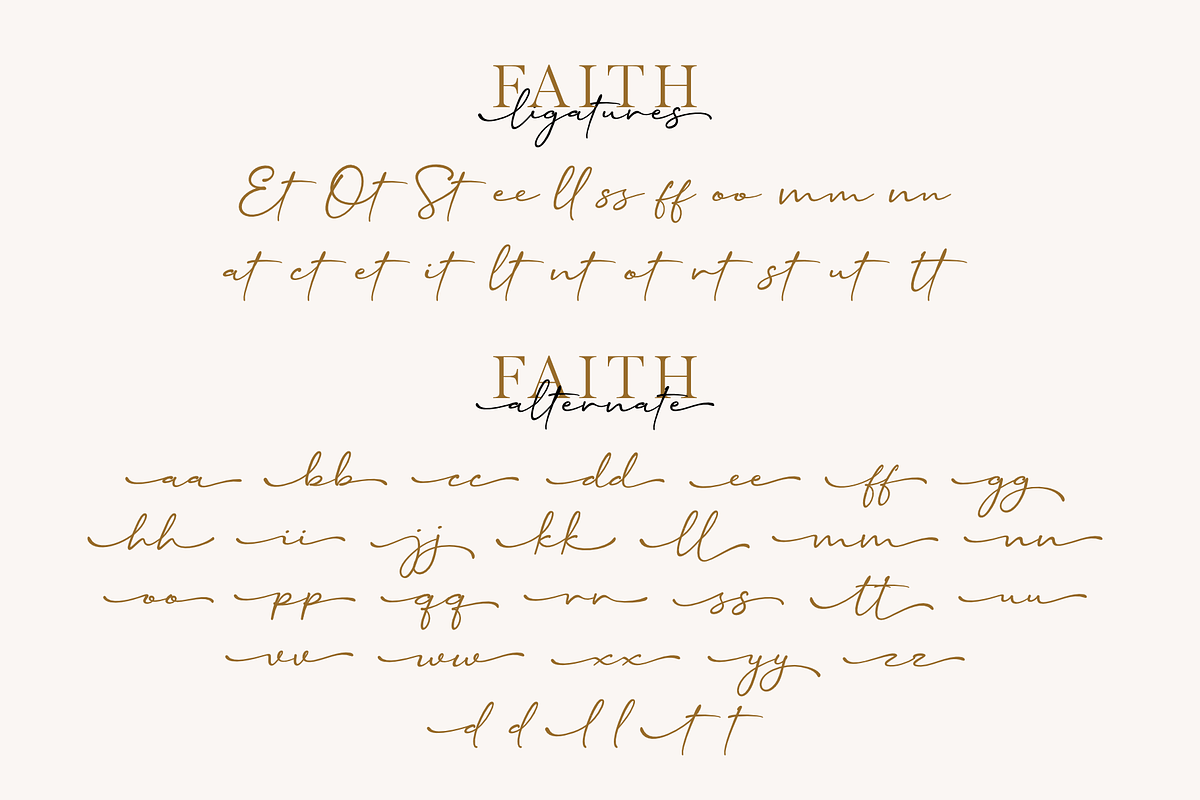 FAITH
ligatures
Et Ot St ee ll ss ff oo mm nn
at ct et it lt nt ot rt st ut tt
FAITH
alternate
aa bb cc dd ee ff gg
hh ii jj kk ll mm nn
oo pp qq rr ss tt uu
vv ww xx yy zz
d d l l t t